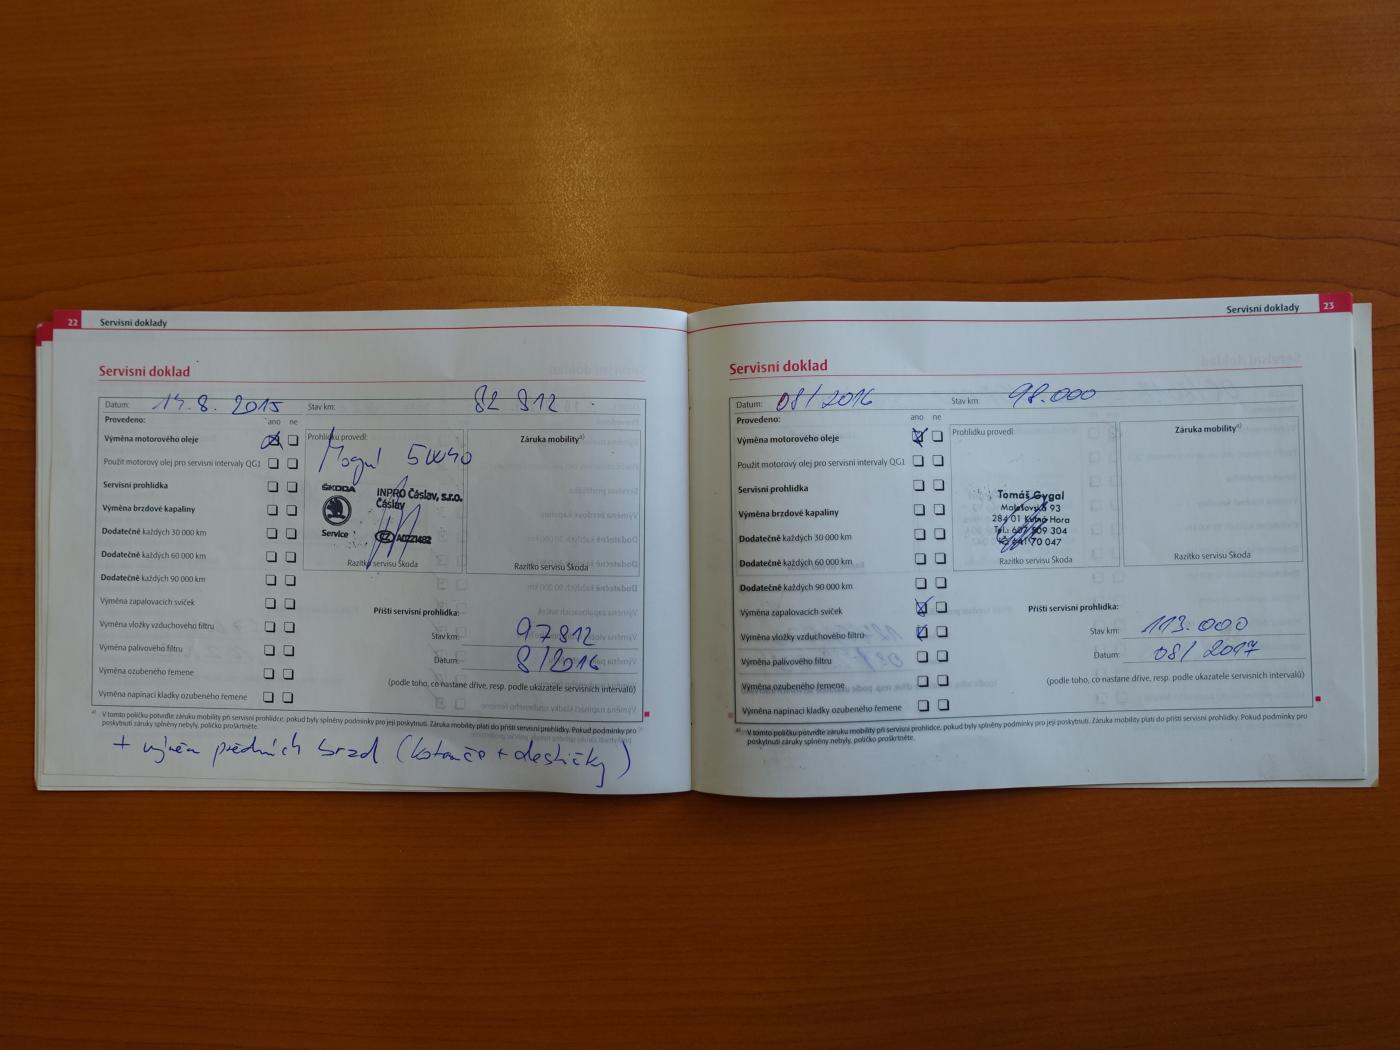 22 Servisní doklady
Servisní doklad
Datum: 14.8. 2015 Stav km: 82 812
Provedeno: ano ne
Výměna motorového oleje
Použit motorový olej pro servisní intervaly QG1
Servisní prohlídka
Výměna brzdové kapaliny
Dodatečně každých 30 000 km
Dodatečně každých 60 000 km
Dodatečně každých 90 000 km
Výměna zapalovacích svíček
Výměna vložky vzduchového filtru
Výměna palivového filtru
Výměna ozubeného řemene
Výměna napínací kladky ozubeného řemene
Prohlídku provedl:
Mogul 5W40
ŠKODA
Service
INPRO Čáslav, s.r.o.
Čáslav
CZ
Razítko servisu Škoda
Záruka mobility a)
Razítko servisu Škoda
Příští servisní prohlídka:
Stav km: 97812
Datum: 8/2016
(podle toho, co nastane dříve, resp. podle ukazatele servisních intervalů)
a) V tomto políčku potvrďte záruku mobility při servisní prohlídce, pokud byly splněny podmínky pro její poskytnutí. Záruka mobility platí do příští servisní prohlídky. Pokud podmínky pro
poskytnutí záruky splněny nebyly, políčko proškrtněte.
+ výměn předních brzd (kotouče + destičky)
Servisní doklady 23
Servisní doklad
Datum: 08/2016 Stav km: 98.000
Provedeno: ano ne
Výměna motorového oleje
Použit motorový olej pro servisní intervaly QG1
Servisní prohlídka
Výměna brzdové kapaliny
Dodatečně každých 30 000 km
Dodatečně každých 60 000 km
Dodatečně každých 90 000 km
Výměna zapalovacích svíček
Výměna vložky vzduchového filtru
Výměna palivového filtru
Výměna ozubeného řemene
Výměna napínací kladky ozubeného řemene
Prohlídku provedl:
Tomáš Cygal
Malešovská 93
284 01 Kutná Hora
Tel.: 607 509 304
70 047
Razítko servisu Škoda
Záruka mobility a)
Razítko servisu Škoda
Příští servisní prohlídka:
Stav km: 113.000
Datum: 08/2017
(podle toho, co nastane dříve, resp. podle ukazatele servisních intervalů)
a) V tomto políčku potvrďte záruku mobility při servisní prohlídce, pokud byly splněny podmínky pro její poskytnutí. Záruka mobility platí do příští servisní prohlídky. Pokud podmínky pro
poskytnutí záruky splněny nebyly, políčko proškrtněte.